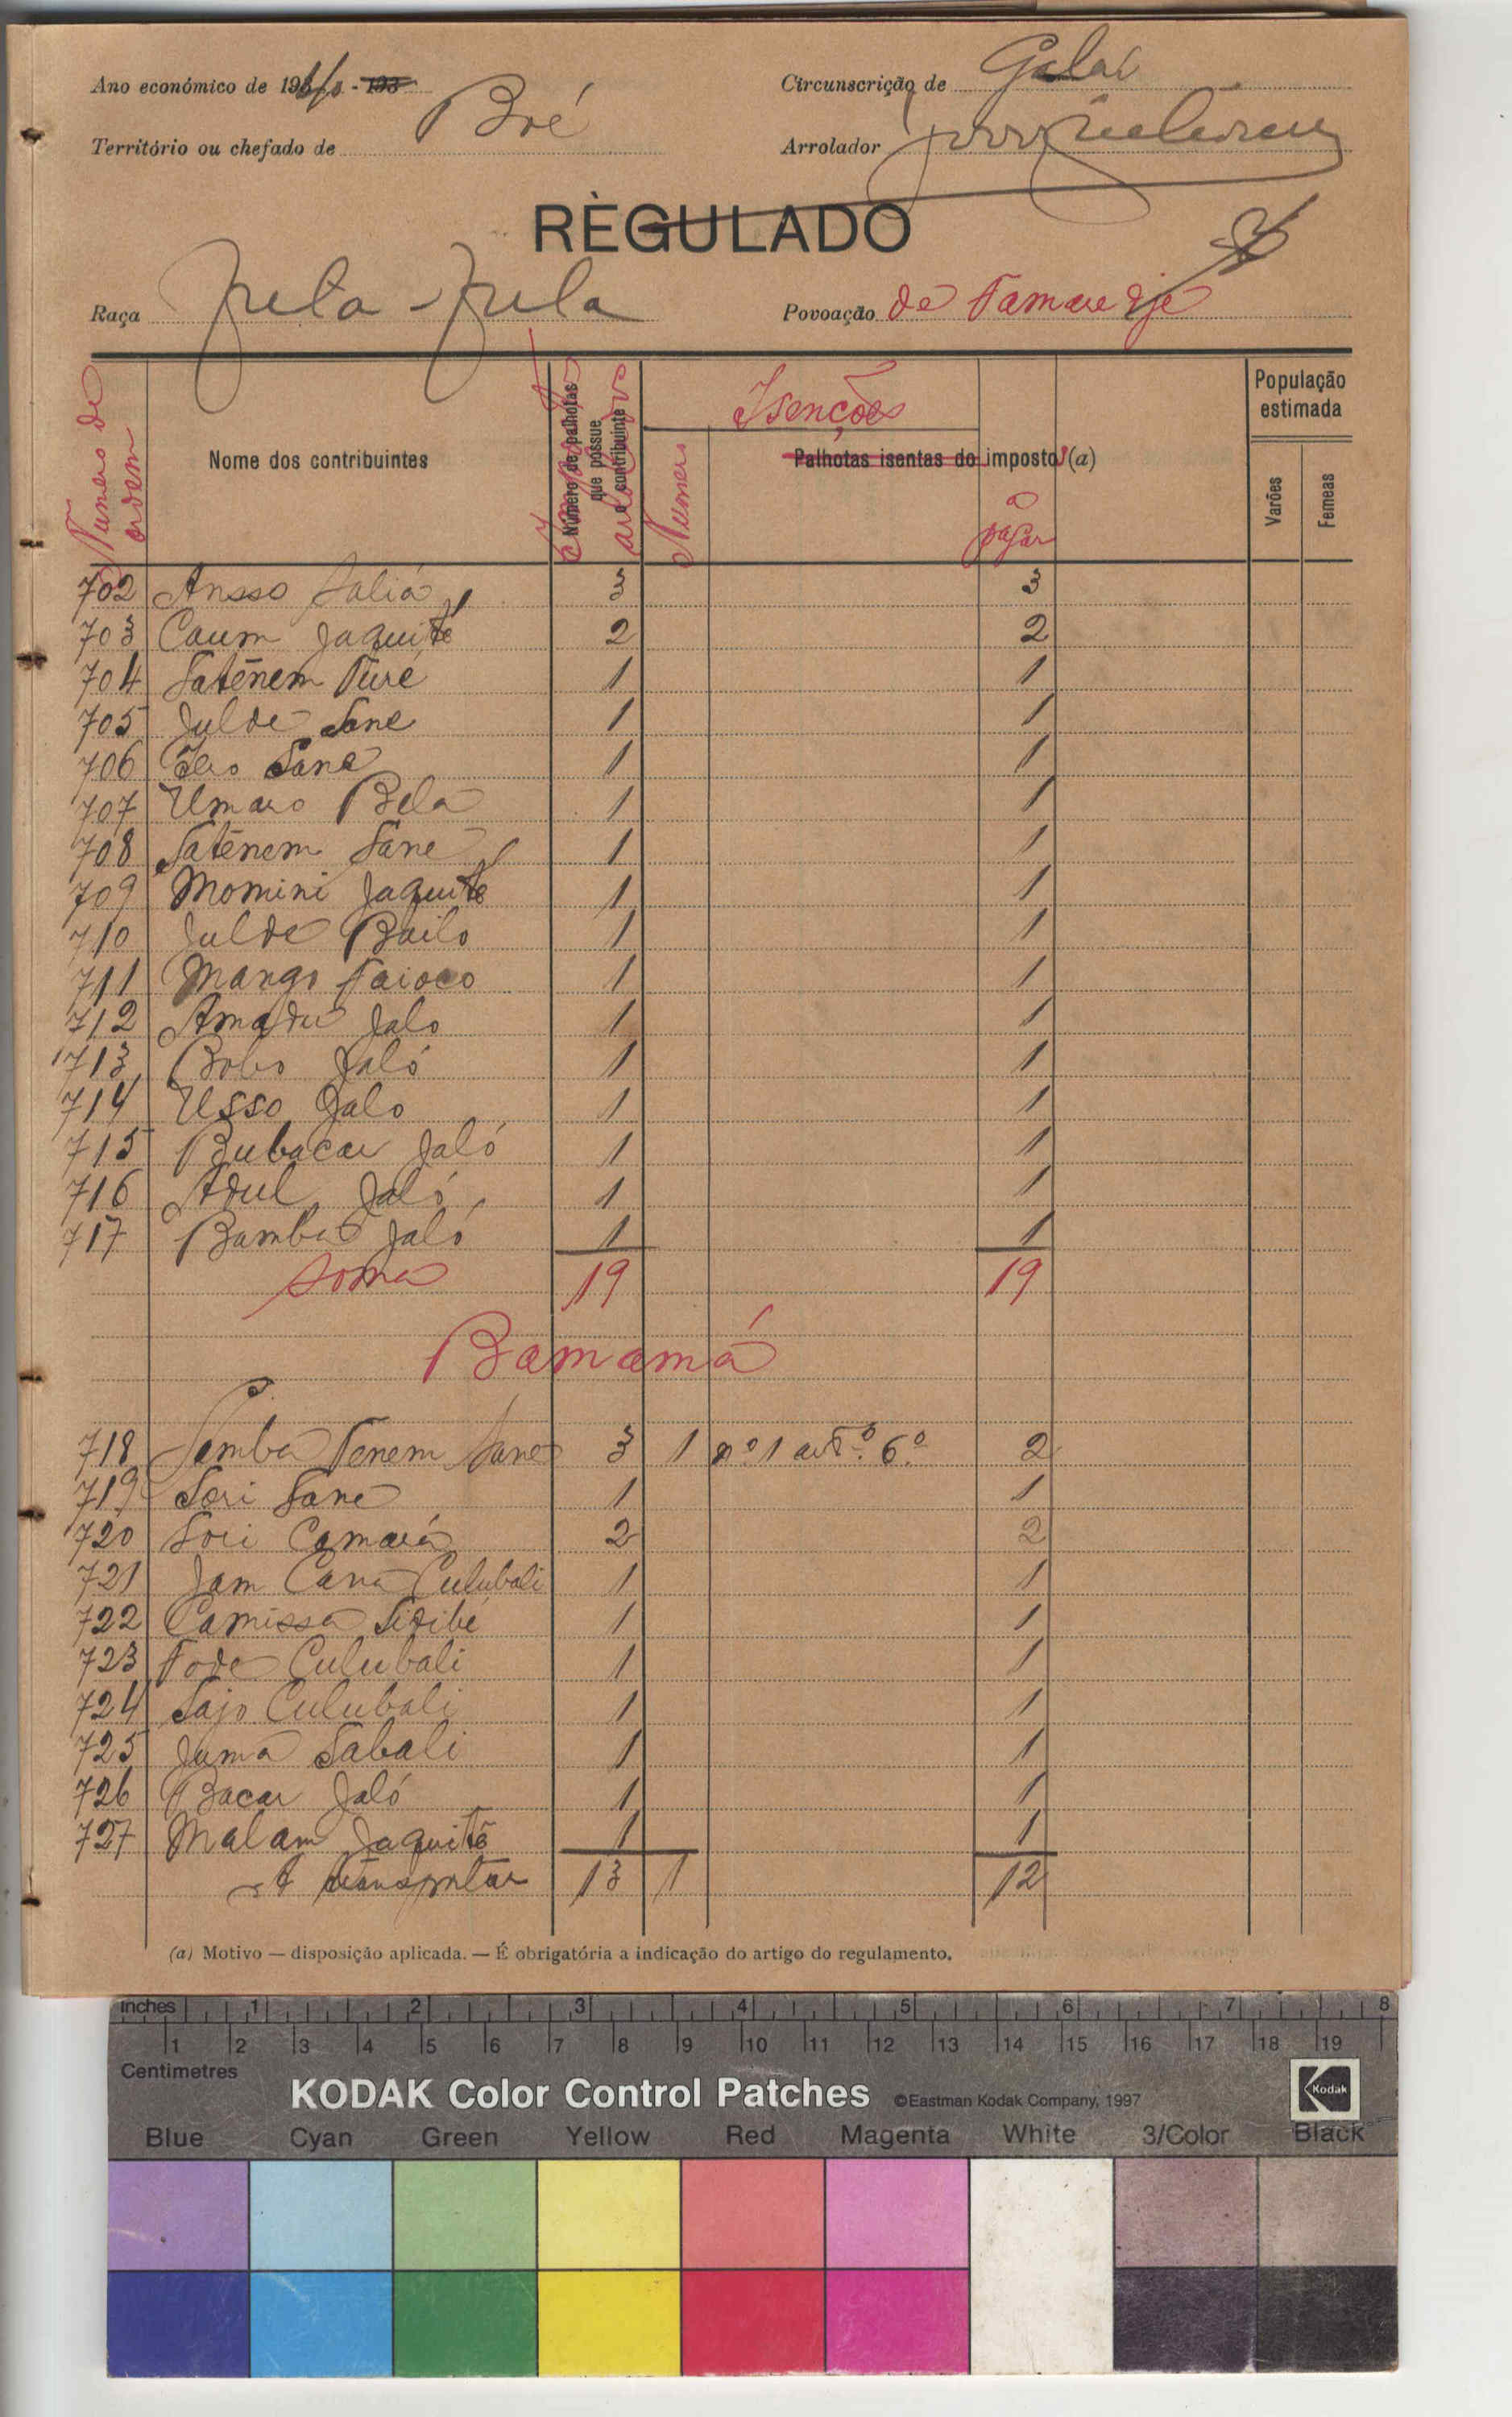 Ano económico de 19
Circunscrição de
Território ou chefado de Boé
Arrolador
RÈGULADO
Raça Fula-Fula
Povoação de
Numero de ordem
Nome dos contribuintes
Número de palhotas que possue o contribuinte
Isenções
Numero
Palhotas isentas do imposto (a)
a pagar
População estimada
Varões
Femeas
702 Ansso 3 3
703 Caum Jaquité 2 2
704 Saténem Turé 1 1
705 Julde Sane 1 1
706 Sane 1 1
707 Umaro Bela 1 1
708 Saténem Sane 1 1
709 Momini Jaquité 1 1
710 Julde Bailo 1 1
711 Mango 1 1
712 Amadu Jalo 1 1
713 Bobo Jaló 1 1
714 Usso Jalo 1 1
715 Bubacar Jaló 1 1
716 Adul Jaló 1 1
717 Bamba Jaló 1 1
Soma 19 19
Bamamá
718 Samba Tenem Sane 3 1 nº 1 artº. 6º 2
719 Sori Sane 1 1
720 Sori Camará 2 2
721 Jam Cana Culubali 1 1
722 Camissa Sidibé 1 1
723 Fode Culubali 1 1
724 Sajo Culubali 1 1
725 Juma Sabali 1 1
726 Bacar Jaló 1 1
727 Malam Jaquité 1 1
A transportar 13 1 12
(a) Motivo — disposição aplicada. — É obrigatória a indicação do artigo do regulamento.
inches 1 2 3 4 5 6 7 8
1 2 3 4 5 6 7 8 9 10 11 12 13 14 15 16 17 18 19
Centimetres
KODAK Color Control Patches ©Eastman Kodak Company, 1997 Kodak
Blue Cyan Green Yellow Red Magenta White 3/Color Black